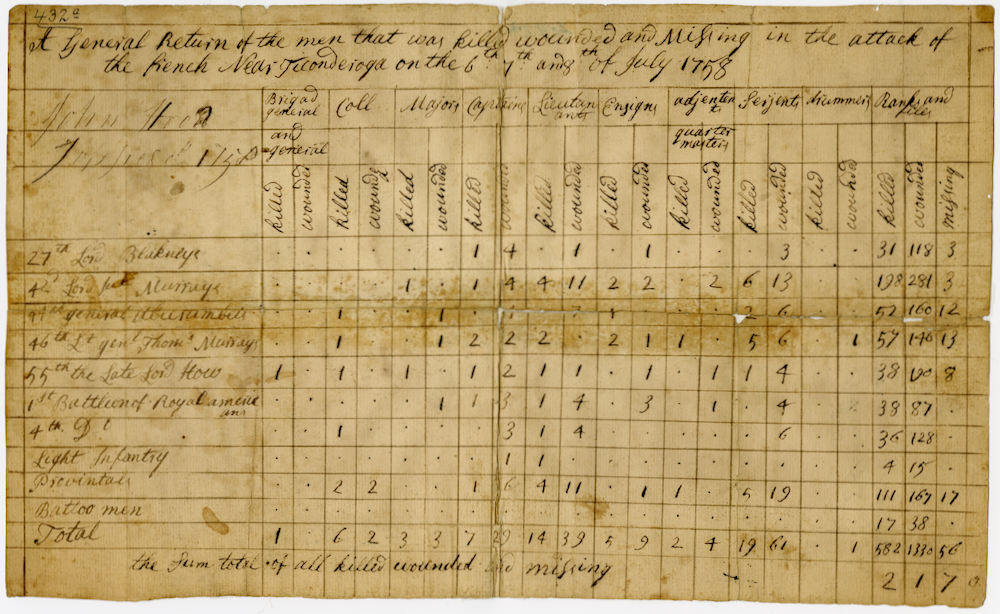 432a
A General Return of the men that was killed wounded and Missing in the attack of
the french Near Ticonderoga on the 6th 7th and 8th of July 1758
John
Brigad general and general Coll Majors Captains Lieutanants Ensigns adjentents quarter masters Serjents drummers Ranks and files
killed wounded killed wounded killed wounded killed wounded killed wounded killed wounded killed wounded killed wounded killed wounded killed wounded missing
27th Lord Blakneys . . . . . . 1 4 . 1 . 1 . . . 3 . . 31 118 3
42d Lord Murrays . . . . 1 . 1 4 4 11 2 2 . 2 6 13 . . 198 281 3
general . . 1 . . 1 . . 1 . . . 2 6 . . 52 160 12
46th Lt genl Thoms Murrays . . 1 . . 1 2 2 2 . 2 1 1 . 5 6 . 1 57 146 13
55th the Late Lord How 1 . 1 . 1 . 1 2 1 1 . 1 . 1 1 4 . . 38 8
1st Battlen of Royal americans . . . . . 1 1 3 1 4 . 3 . 1 . 4 . 38 87 .
4th Dt . . 1 . . . . 3 1 4 . . . . . 6 . . 36 128 .
Light Infantry . . . . . . . 1 1 . . . . . . . . . 4 15 .
Provintals . . 2 2 . . 1 6 4 11 . 1 1 . 5 19 . . 111 167 17
Battoo men . . . . . . . . . . . . . . . . . . 17 38 .
Total 1 . 6 2 3 3 7 29 14 39 5 9 2 4 19 61 . 1 582 1330 56
the Sum total of all killed wounded and missing 2 1 7 0